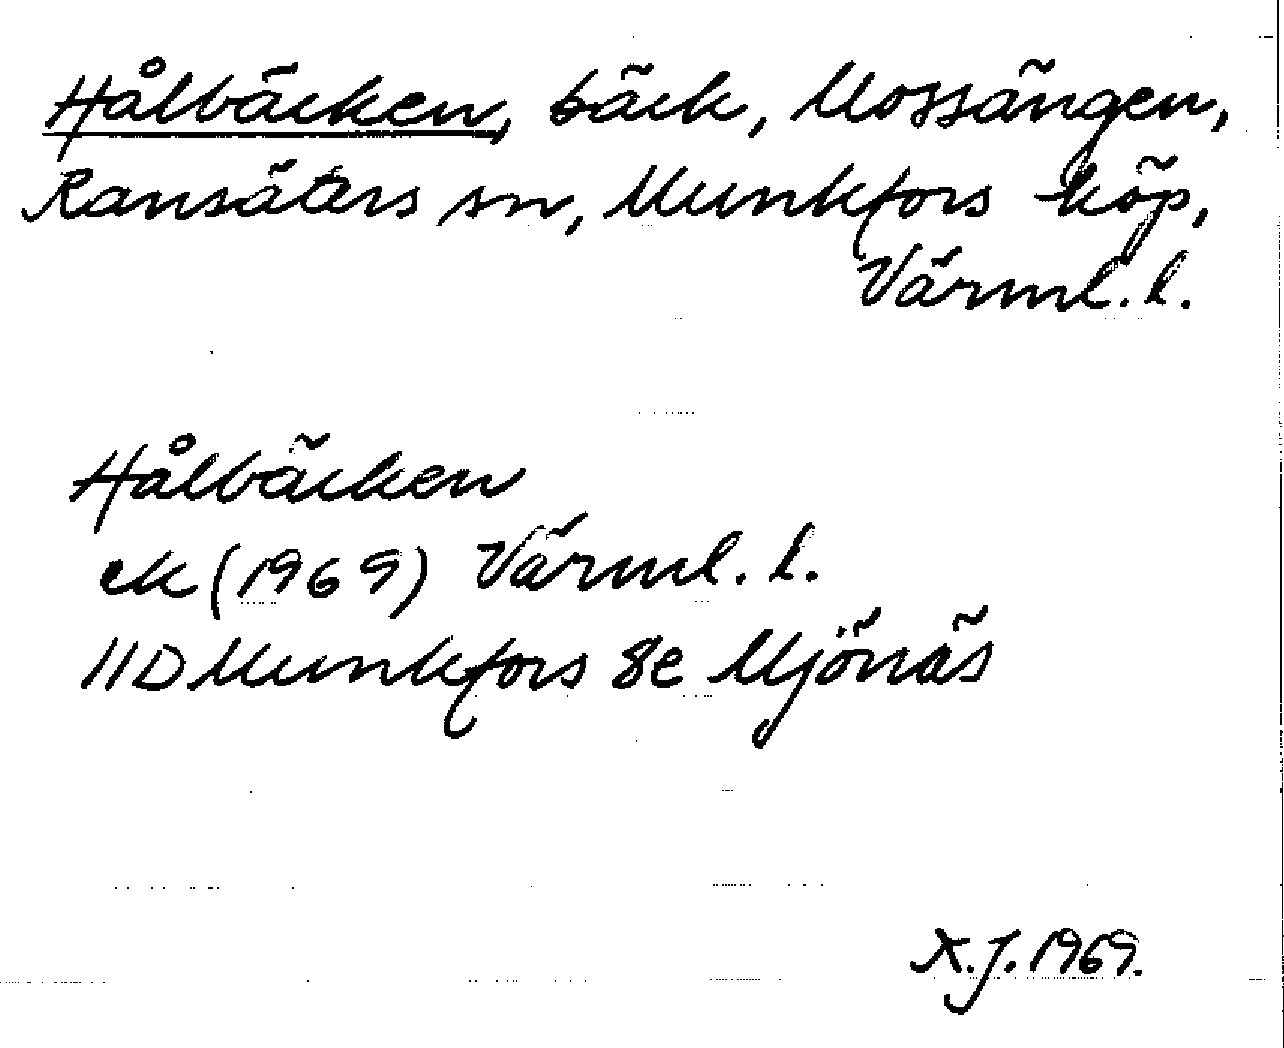 Hålbäcken, bäck, Mossängen,
Ransäters sn, Munkfors köp,
Värml. l.
Hålbäcken
ek (1969) Värml. l.
11D Munkfors 8e Mjönäs
A.J. 1969.